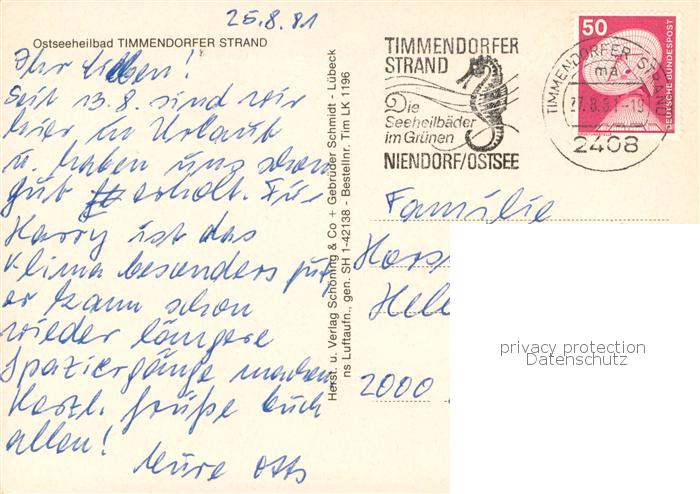 25.8.81
Ostseeheilbad TIMMENDORFER STRAND
Ihr Lieben!
Seit 13.8. sind wir
hier in Urlaub
u. haben uns schon
gut erholt. Für
Harry ist das
Klima besonders gut,
er kann schon
wieder längere
Spaziergänge machen
Herzl. Grüße Euch
allen!
Eure
Herst. u. Verlag Schöning & Co + Gebrüder Schmidt - Lübeck
ns Luftaufn., gen. SH 1-42138 - Bestellnr. Tim LK 1196
TIMMENDORFER
STRAND
Die
Seeheilbäder
im Grünen
NIENDORF/OSTSEE
TIMMENDORFER STRAND
ma
27.8.81-19
2408
50
DEUTSCHE BUNDESPOST
Familie
Hors
Hel
2000
privacy protection
Datenschutz